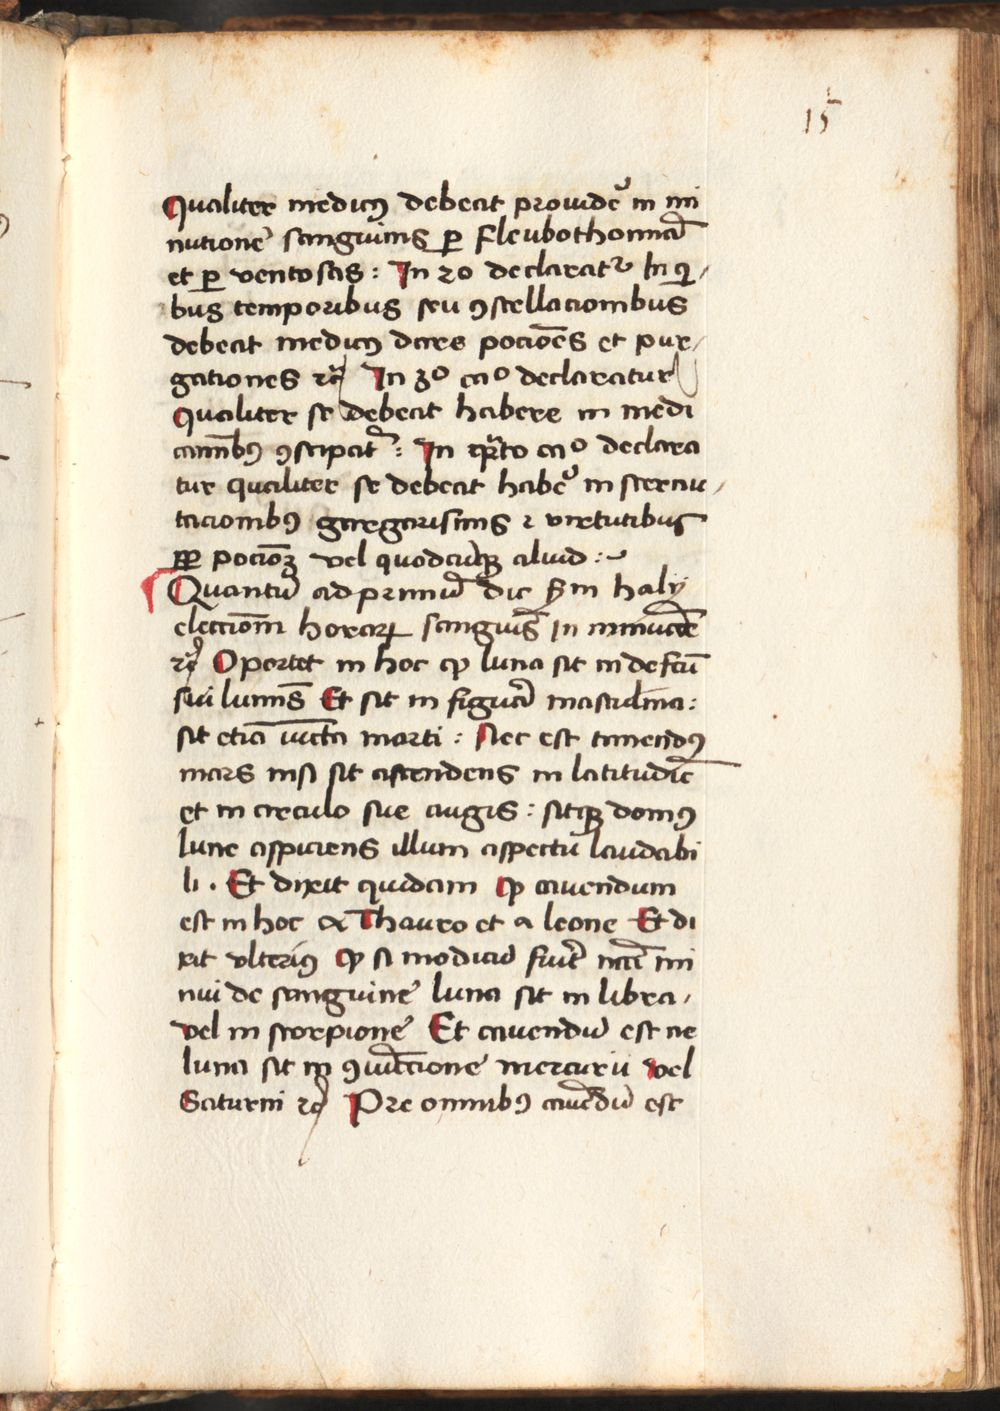 15
Qualiter medicꝰ debeat prouidē in mi
nutione sanguinis ꝑ fleubothomiā
et ꝑ ventosas : In 2o declaratr In qi /
bus temporibus seu ꝯstellacionibus
debeat medicꝰ dare pocioēs et pur /
gationes ⁊c̄ In 3o cao declaratur
Qualiter se debeat habere in medi
camībꝰ ꝯstipatis : In qrto cao declara
tur qualiter se debeat habē in sternu /
tacionibꝰ gargarismis ⁊ virtutibus
ꝑꝑ pocioꝫ vel quodcūqꝫ aliud :~
Quantū ad primū dic͛ Sm haly
elecciom̄ horaꝝ sanguīs In minucōe
⁊c̄ Oportet in hoc ꝙ luna sit in defcū
sui lumīs Et sit in figurā masculina :
sit etiā iūcta marti : Nec est timendꝰ
mars nisi sit ascendens in latitudīe
et in circulo sue augis : sitqꝫ domꝰ
lune aspiciens illum aspectu laudabi
li . Et dixit quidam ꝙ cauendum
est in hoc a Thauro et a leone Et di
xit vlteriꝰ ꝙ si modicū fuīt ncc̄m mi
nui de sanguine luna sit in libra /
vel in scorpione Et cauendū est ne
luna sit in ꝯiūccione mercurii vel
Saturni ⁊c̄ Pre omnibꝰ cauēdū est